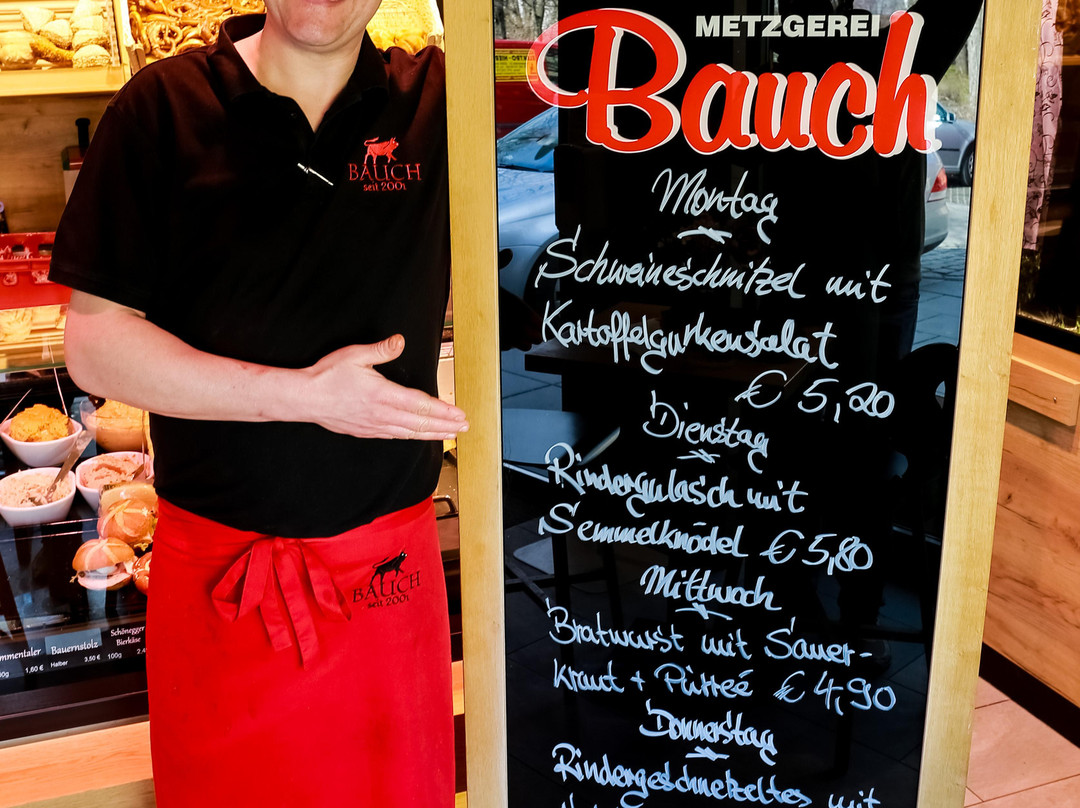 METZGEREI
Bauch
Montag
Schweineschnitzel mit
Kartoffelgurkensalat
€ 5,20
Dienstag
Rindergulasch mit
Semmelknödel € 5,80
Mittwoch
Bratwurst mit Sauer-
kraut + Püree € 4,90
Donnerstag
Rindergeschnetzeltes mit
BAUCH
seit 2001
BAUCH
seit 2001
mmentaler
1,60 €
Bauernstolz
Halber 3,50 €
Schönegger
Bierkäse
100g